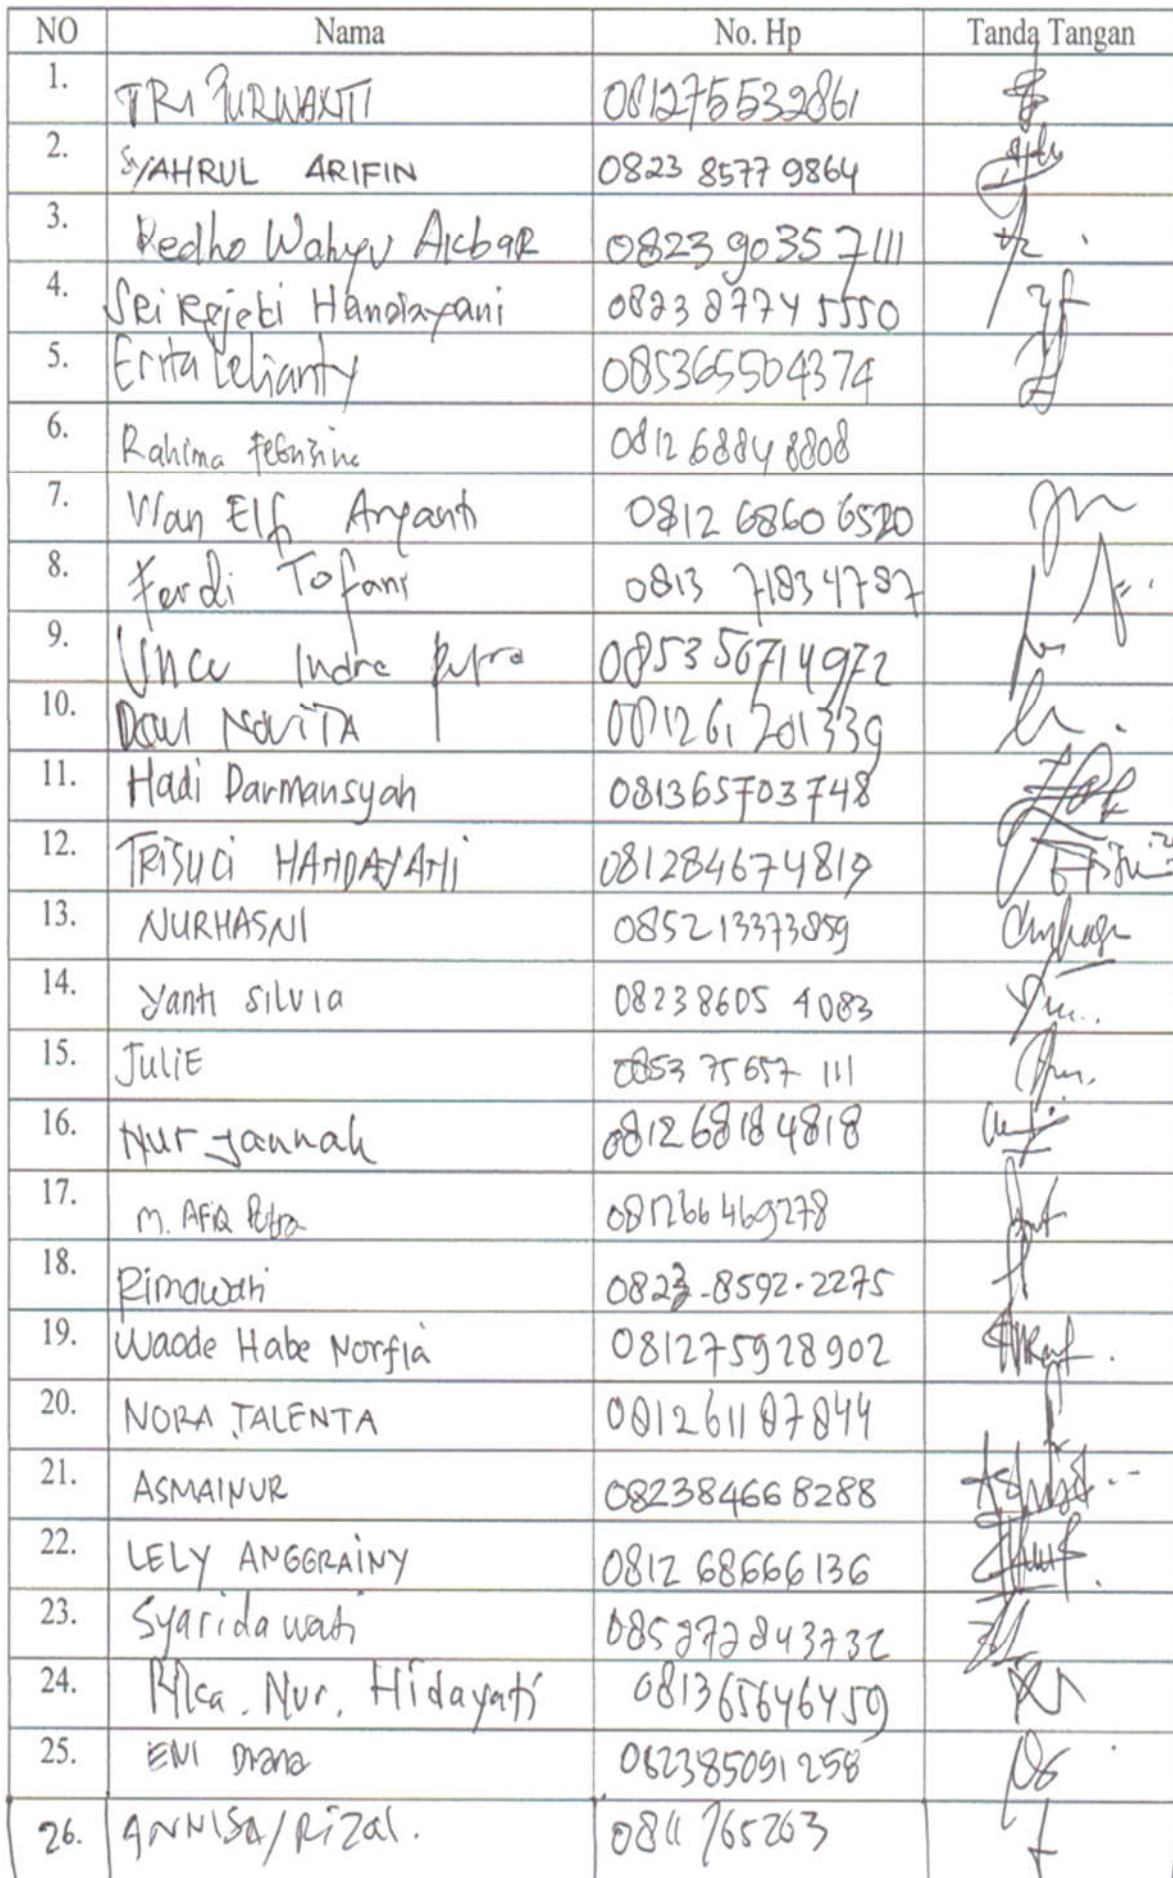 NO Nama No. Hp Tanda Tangan
1. TRI PURWANTI 081275532861
2. SYAHRUL ARIFIN 0823 8577 9864
3. Redho Wahyu Akbar 0823 9035 7111
4. Sri Rejeki Handayani 0823 8774 5550
5. Erita Lelianty 085365504374
6. Rahima 0812 6884 8808
7. Wan Elfi Aryanti 0812 6860 6520
8. Ferdi Tofani 0813 7183 4787
9. Unce Indra Putra 085356714972
10. NOVITA 081261201339
11. Hadi Darmansyah 081365703748
12. TRISUCI HANDAYANI 081284674819
13. NURHASNI 085213373859
14. Yanti SILVIA 08238605 4083
15. JULIE 0853 75657 111
16. Nur Jannah 081268184818
17. M. AFIQ Putra 081266469278
18. Rimawati 0823-8592-2275
19. Waode Habe Norfia 081275928902
20. NORA TALENTA 081261187844
21. ASMAINUR 082384668288
22. LELY ANGGRAINY 0812 68666136
23. Syaridawati 085272843732
24. Nur. Hidayati 081365646459
25. ENI Diana 082385091258
26. ANNISA/RIZAL. 0811 765263